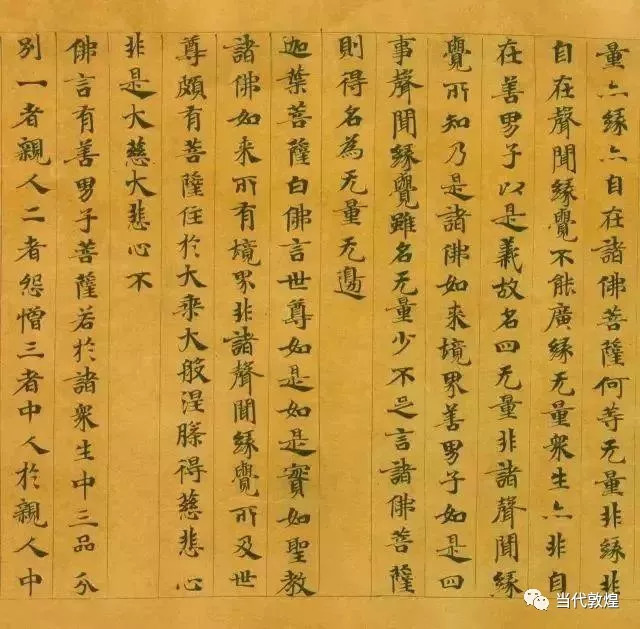 量亦緣亦自在諸佛菩薩何等无量非緣非
自在聲聞緣覺不能廣緣无量衆生亦非自
在善男子以是義故名四无量非諸聲聞緣
覺所知乃是諸佛如来境界善男子如是四
事聲聞緣覺雖名无量少不足言諸佛菩薩
則得名為无量无邊
迦葉菩薩白佛言世尊如是如是實如聖教
諸佛如来所有境界非諸聲聞緣覺所及世
尊頗有菩薩住於大乘大般涅槃得慈悲心
非是大慈大悲心不
佛言有善男子菩薩若於諸衆生中三品分
別一者親人二者怨憎三者中人於親人中
当代敦煌